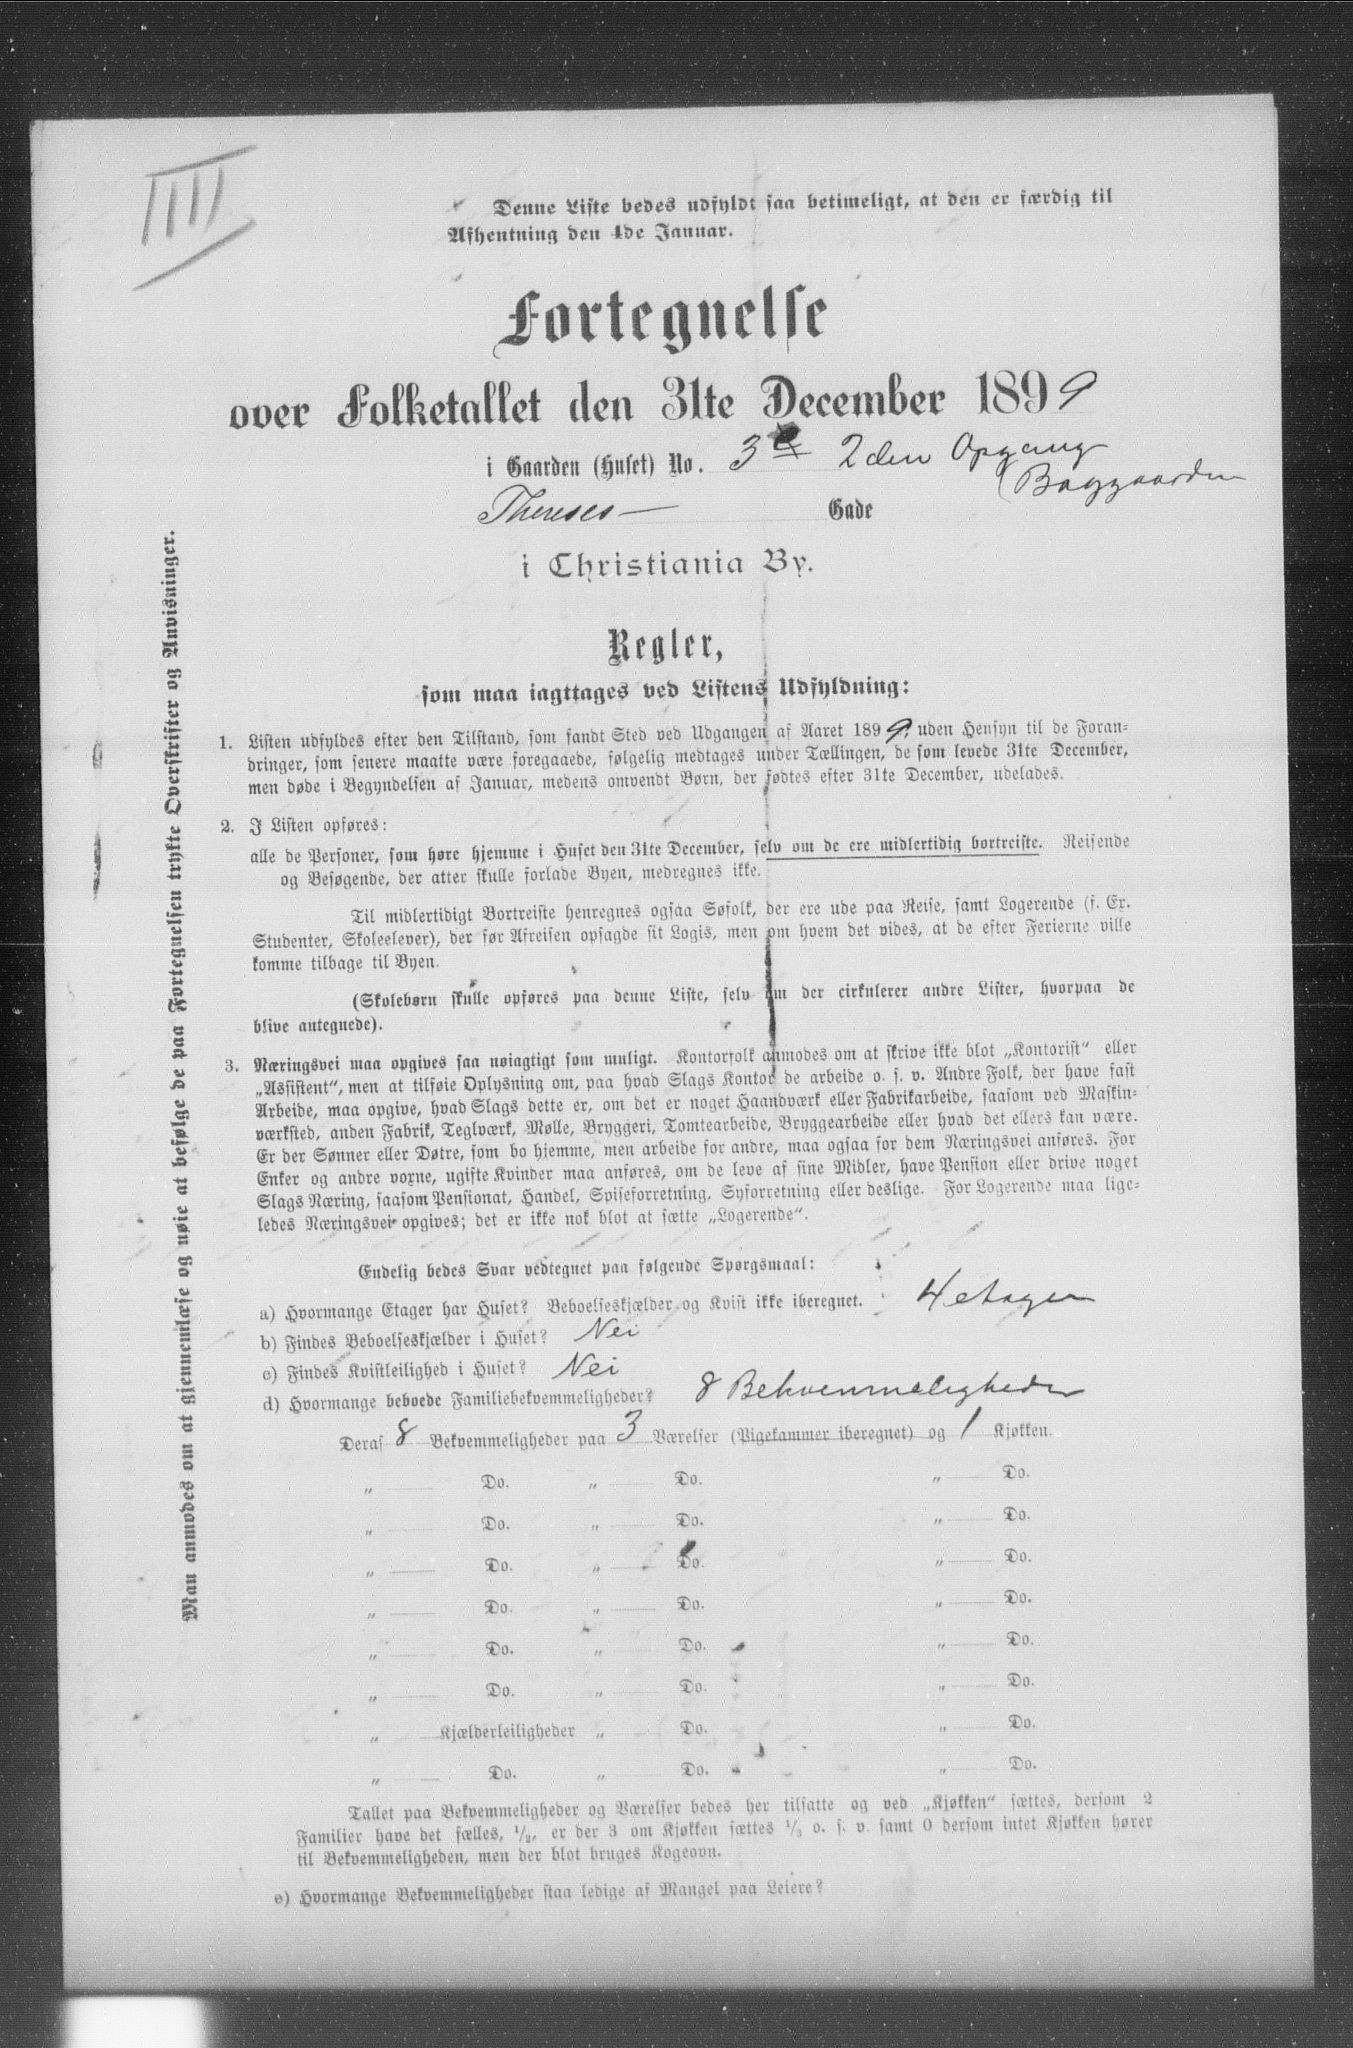 IIII
Denne Liste bedes udfyldt saa betimeligt, at den er færdig til
Afhentning den 4de Januar.
Fortegnelse
over Folketallet den 31te December 1899
i Gaarden (Huset) No. 3 2den Opgang
(Baggaarden
Thereses Gade
i Christiania By.
Regler,
som maa iagttages ved Listens Udfyldning:
1. Listen udfyldes efter den Tilstand, som fandt Sted ved Udgangen af Aaret 1899 uden Hensyn til de Foran-
dringer, som senere maatte være foregaaede, følgelig medtages under Tællingen, de som levede 31te December,
men døde i Begyndelsen af Januar, medens omvendt Børn, der fødtes efter 31te December, udelades.
2. I Listen opføres:
alle de Personer, som høre hjemme i Huset den 31te December, selv om de ere midlertidig bortreiste. Reisende
og Besøgende, der atter skulle forlade Byen, medregnes ikke.
Til midlertidigt Bortreiste henregnes ogsaa Søfolk, der ere ude paa Reise, samt Logerende (f. Ex.
Studenter, Skoleelever), der før Afreisen opsagde sit Logis, men om hvem det vides, at de efter Ferierne ville
komme tilbage til Byen.
(Skolebørn skulle opføres paa denne Liste, selv om der cirkulerer andre Lister, hvorpaa de
blive antegnede).
3. Næringsvei maa opgives saa nøiagtigt som muligt. Kontorfolk anmodes om at skrive ikke blot „Kontorist“ eller
„Assistent“, men at tilføie Oplysning om, paa hvad Slags Kontor de arbeide o. s. v. Andre Folk, der have fast
Arbeide, maa opgive, hvad Slags dette er, om det er noget Haandværk eller Fabrikarbeide, saasom ved Maskin-
værksted, anden Fabrik, Teglværk, Mølle, Bryggeri, Tomtearbeide, Bryggearbeide eller hvad det ellers kan være.
Er der Sønner eller Døtre, som bo hjemme, men arbeide for andre, maa ogsaa for dem Næringsvei anføres. For
Enker og andre voxne, ugifte Kvinder maa anføres, om de leve af sine Midler, have Pension eller drive noget
Slags Næring, saasom Pensionat, Handel, Spiseforretning, Syforretning eller deslige. For Logerende maa lige-
ledes Næringsvei opgives; det er ikke nok blot at sætte „Logerende“.
Endelig bedes Svar vedtegnet paa følgende Spørgsmaal:
a) Hvormange Etager har Huset? Beboelseskjælder og Kvist ikke iberegnet. 4 etager
b) Findes Beboelseskjælder i Huset? Nei
c) Findes Kvistleilighed i Huset? Nei
d) Hvormange beboede Familiebekvemmeligheder? 8 Bekvemmeligheder
Deraf 8 Bekvemmeligheder paa 3 Værelser (Pigekammer iberegnet) og 1 Kjøkken.
„ Do. „ Do. „ Do.
„ Do. „ Do. „ Do.
„ Do. „ Do. „ Do.
„ Do. „ Do. „ Do.
„ Do. „ Do. „ Do.
„ Do. „ Do. „ Do.
„ Kjælderleiligheder „ Do. „ Do.
„ Do. „ Do. „ Do.
Tallet paa Bekvemmeligheder og Værelser bedes her tilsatte og ved „Kjøkken“ sættes, dersom 2
Familier have det fælles, 1/2, er der 3 om Kjøkken sættes 1/3 o. s. v. samt 0 dersom intet Kjøkken hører
til Bekvemmeligheden, men der blot bruges Kogeovn.
e) Hvormange Bekvemmeligheder staa ledige af Mangel paa Leiere?
Man anmodes om at gjennemlæse og nøie at befølge de paa Fortegnelsen trykte Overskrifter og Anvisninger.